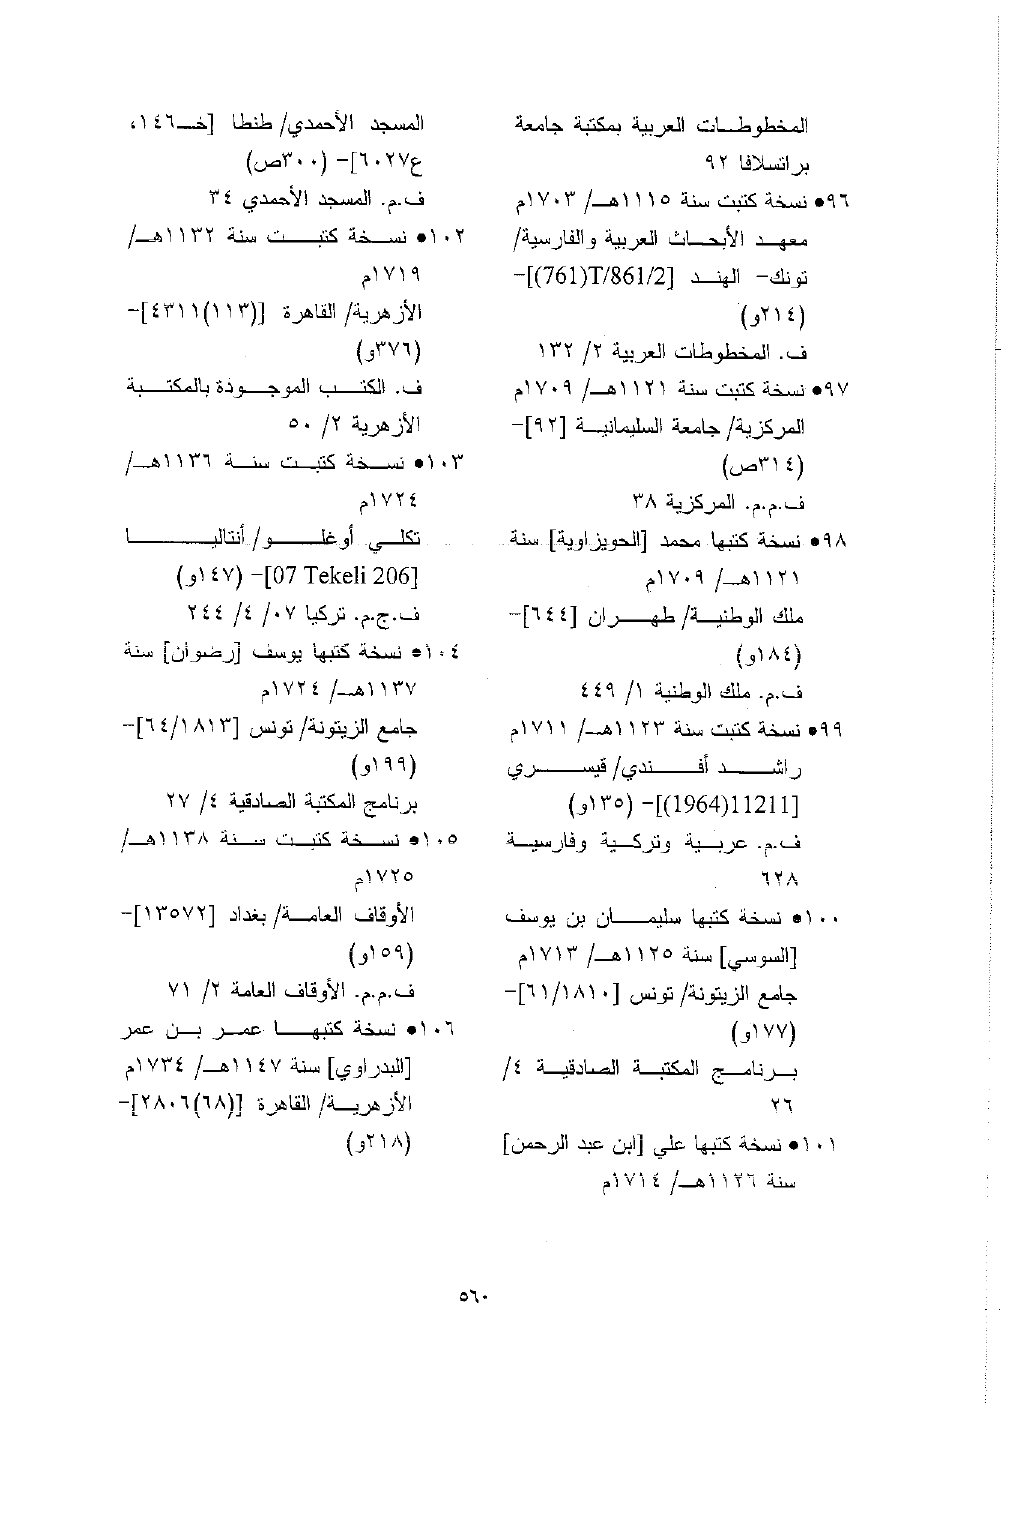 المخطوطات العربية بمكتبة جامعة
براتسلافا ٩٢
٩٦• نسخة كتبت سنة ١١١٥هـ/ ١٧٠٣م
معهد الأبحاث العربية والفارسية/
تونك- الهند [T/861/2(761)]-
(٢١٤و)
ف. المخطوطات العربية ٢/ ١٣٢
٩٧• نسخة كتبت سنة ١١٢١هـ/ ١٧٠٩م
المركزية/ جامعة السليمانية [٩٢]-
(٣١٤ص)
ف.م.م. المركزية ٣٨
٩٨• نسخة كتبها محمد [الحويزاوية] سنة
١١٢١هـ/ ١٧٠٩م
ملك الوطنية/ طهران [٦٤٤]-
(١٨٤و)
ف.م. ملك الوطنية ١/ ٤٤٩
٩٩• نسخة كتبت سنة ١١٢٣هـ/ ١٧١١م
راشد أفندي/ قيسري
[11211(1964)]- (١٣٥و)
ف.م. عربية وتركية وفارسية
٦٢٨
١٠٠• نسخة كتبها سليمان بن يوسف
[السوسي] سنة ١١٢٥هـ/ ١٧١٣م
جامع الزيتونة/ تونس [٦١/١٨١٠]-
(١٧٧و)
برنامج المكتبة الصادقية ٤/
٢٦
١٠١• نسخة كتبها علي [ابن عبد الرحمن]
سنة ١١٢٦هـ/ ١٧١٤م
المسجد الأحمدي/ طنطا [خـ١٤٦،
ع٦٠٢٧]- (٣٠٠ص)
ف.م. المسجد الأحمدي ٣٤
١٠٢• نسخة كتبت سنة ١١٣٢هـ/
١٧١٩م
الأزهرية/ القاهرة [(١١٣)٤٣١١]-
(٣٧٦و)
ف. الكتب الموجودة بالمكتبة
الأزهرية ٢/ ٥٠
١٠٣• نسخة كتبت سنة ١١٣٦هـ/
١٧٢٤م
تكلي أوغلو/ أنتاليا
[07 Tekeli 206]- (١٤٧و)
ف.ج.م. تركيا ٠٧/ ٤/ ٢٤٤
١٠٤• نسخة كتبها يوسف [رضوان] سنة
١١٣٧هـ/ ١٧٢٤م
جامع الزيتونة/ تونس [٦٤/١٨١٣]-
(١٩٩و)
برنامج المكتبة الصادقية ٤/ ٢٧
١٠٥• نسخة كتبت سنة ١١٣٨هـ/
١٧٢٥م
الأوقاف العامة/ بغداد [١٣٥٧٢]-
(١٥٩و)
ف.م.م. الأوقاف العامة ٢/ ٧١
١٠٦• نسخة كتبها عمر بن عمر
[البدراوي] سنة ١١٤٧هـ/ ١٧٣٤م
الأزهرية/ القاهرة [(٦٨)٢٨٠٦]-
(٢١٨و)
٥٦٠